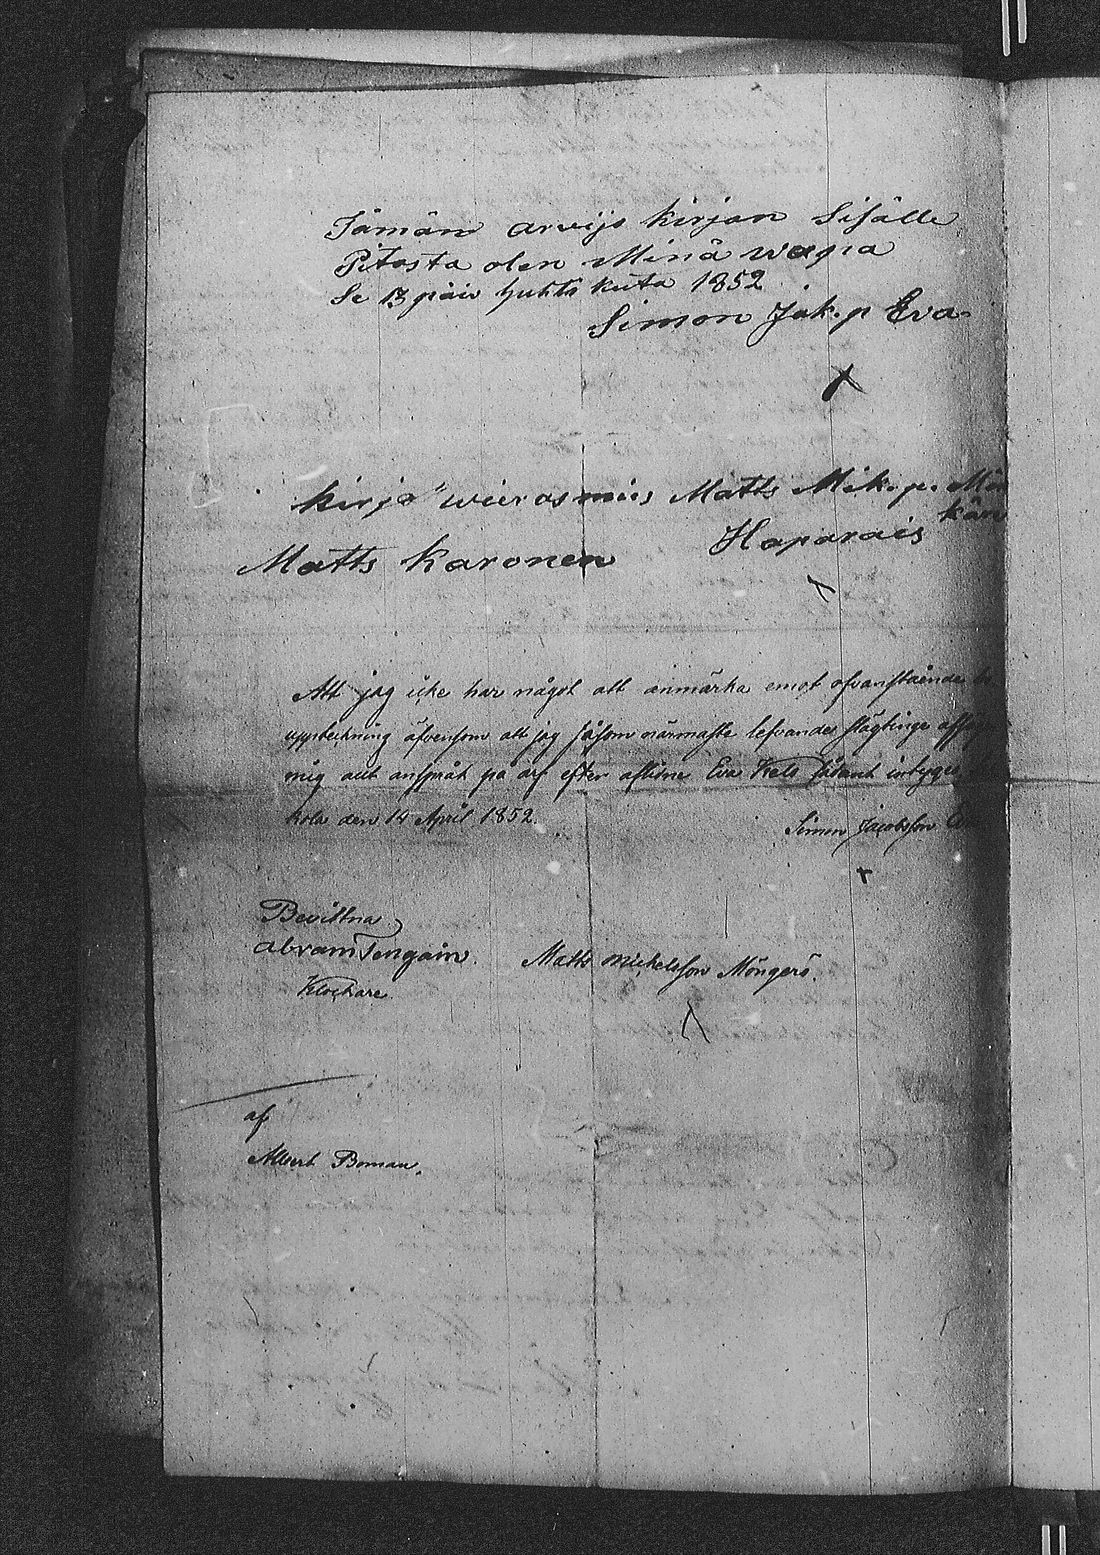 Tämän arvijs kirjan Sisälle
Pitosta olen Minä wapa
Se 13 päiv huhti kuta 1852
Simon Jak.p Eva
kirja wieros mies Matts Mik.p. Mön
kän
Haparais
Matts Karonen
Att jag icke har något att anmärka emot ofvanstående
uppteckning äfvensom att jag såsom närmaste lefvande slägtinge
mig allt anspråk på arf efter aflidne Eva sådant intygas
kola den 14 April 1852.
Simon Jacobsson
Bevittna
Abram Tengain.
Klockare.
Matts Michelsson Möngerö.
af
Albert Boman.